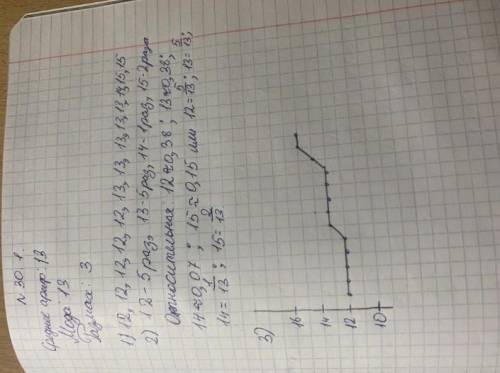 N 30.1.
Среднее арифм: 13
Мода 13
Размах: 3
1) 12, 12, 12, 12, 12, 13, 13, 13, 13, 13, 15, 15
2) 12 - 5 раз, 13 - 5 раз, 14 - 1 раз, 15 - 2 раза
Относительная 12≈0,38; 13≈0,38;
14≈0,07; 15≈0,15 или 12=5/13; 13=5/13;
14=1/13; 15=2/13
3)
16
14
12
10